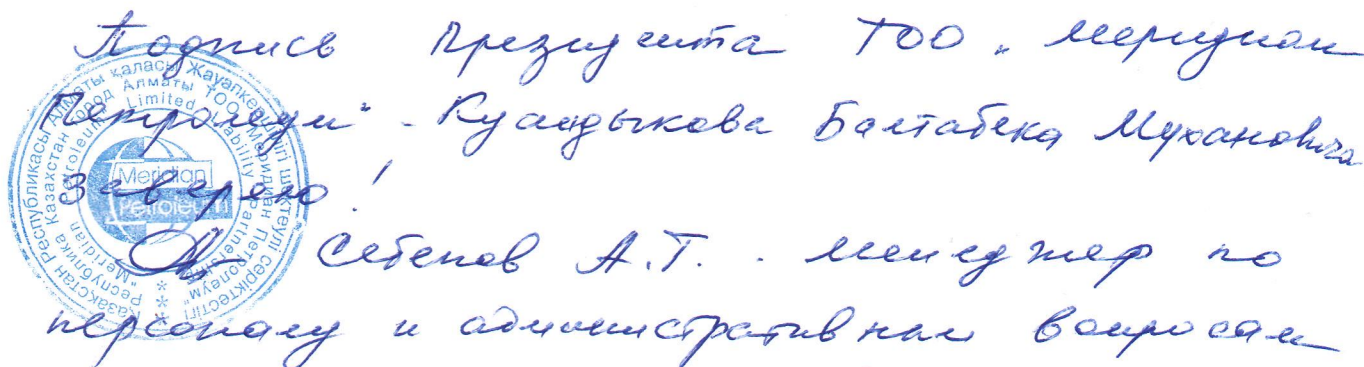 Подпись Президента ТОО „Меридиан
Петролеум“ - Куандыкова Балтабека Мухановича
заверяю!
Себепов А.Т. - менеджер по
персоналу и административным вопросам
Қазақстан Республикасы Алматы қаласы Жауапкершілігі шектеулі серіктестігі
Республика Казахстан город Алматы ТОО "Меридиан Петролеум"
"Meridian Petroleum" Limited Liability Partnership
Meridian
Petroleum